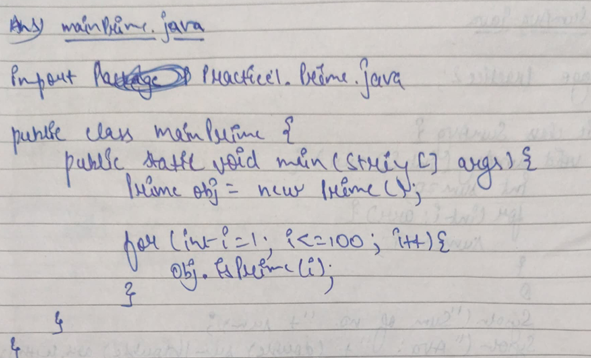 Ans) mainPrime.java
import Practice1.Prime.java
public class mainPrime {
public static void main(String[] args) {
Prime obj = new Prime();
for (int i=1; i<=100; i++) {
obj.isPrime(i);
}
}
}